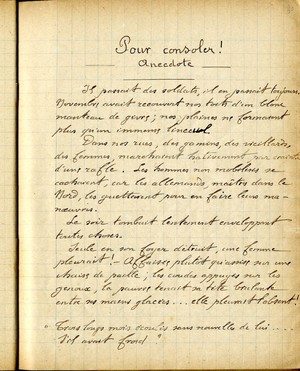 Pour consoler!
Anecdote
Il passait des soldats, il en passait toujours.
Novembre avait recouvert nos toits d'un blanc
manteau de givre; nos plaines ne formaient
plus qu'un immense linceul.
Dans nos rues, des gamins, des vieillards,
des femmes, marchaient hâtivement par crainte
d'une rafle. Les hommes non mobilisés se
cachaient, car les allemands, maîtres dans le
Nord, les guettaient pour en faire leurs ma-
nœuvres.
Le soir tombait lentement enveloppant
toutes choses.
Seule en son foyer détruit, une femme
pleurait! - Affaissée plutôt qu'assise sur une
chaise de paille; les coudes appuyés sur les
genoux, la pauvre tenait sa tête brûlante
entre ses mains glacées... elle pleurait l'absent!
"Trois longs mois écoulés sans nouvelles de lui....
S'il avait froid"